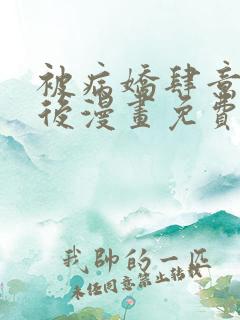 被病嬌肆意
後漫畫免費
我帥的一匹
未经同意禁止转载